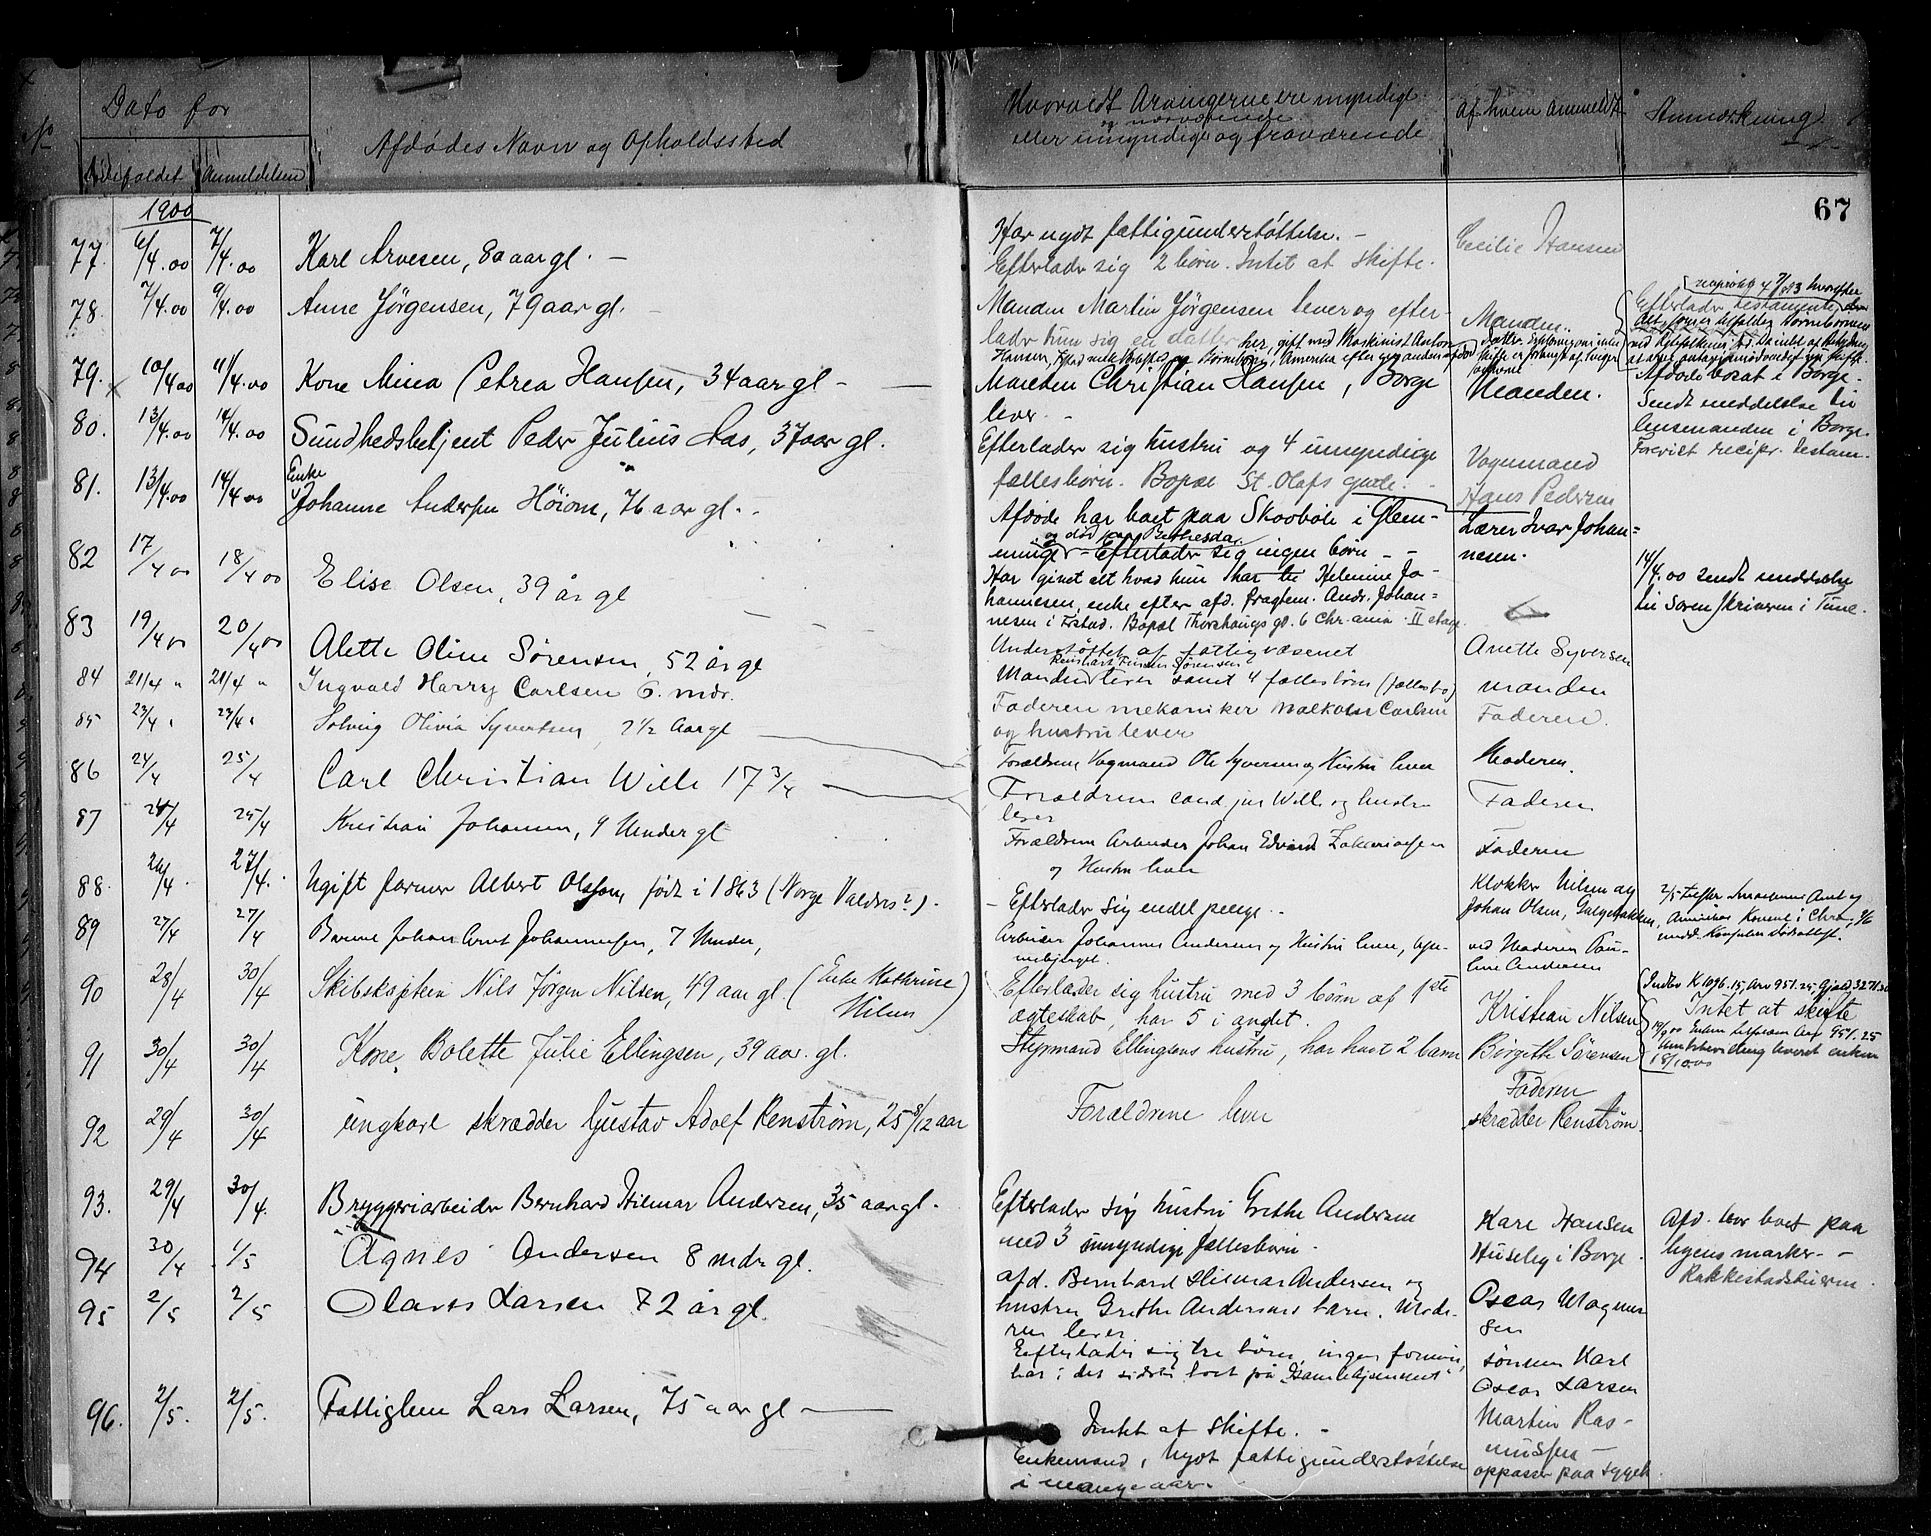 No
Dato for
Dødsfaldet
Anmeldelsen
Afdødes Navn og Opholdssted
Hvorvidt Arvingerne ere myndige
og nærværende
eller umyndige og fraværende
Af hvem anmeldt
Anmærkning
67
1900
77. 6/4.00 7/4.00 Karl Arvesen, 80 aar gl. —
Har nydt fattigunderstøttelse. —
Efterlader sig 2 børn. Intet at skifte.
Cecilie Hansen
78. 7/4.00 9/4.00 Anne Jørgensen, 79 aar gl. —
Manden Martin Jørgensen lever og efter-
lader hun sig en datter her, gift med Maskinist Anton
Hansen,
Manden.
79. 10/4 00 11/4.00 Kone Mina Petrea Hansen, 34 aar gl —
Manden Christian Hansen, Borge
lever. —
Manden.
Afdøde bosat i Borge.
Sendt meddelelse til
lensmanden i Borge.
80. 13/4.00 14/4.00 Sundhedsbetjent Peder Julius Aas, 37 aar gl.
Efterlader sig hustru og 4 umyndige
fællesbørn. Bopæl St. Olafs gade. —
Vognmand
Hans Pedersen
Forevist recipr. testam.
81. 13/4.00 14/4 00 Enke
Johanne Andersen Höiom, 76 aar gl. -
Afdøde har boet paa Skovbøle i Glem-
og død paa Bethesda
minge - Efterlader sig ingen børn - -
Har givet alt hvad hun har til Helmine Jo-
hannesen, enke efter afd. fragtem. Andr. Johan=
nesen i Frstad. Bopæl Thorshaugs gd. 6 Chr.ania. II etage
Lærer Ivar Johan=
nesen.
14/4.00 sendt meddelelse
til Sorenskriveren i Tune.
82 17/4 00 18/4 00 Elise Olsen, 39 år gl
Understøttet af fattigvæsenet
Anette Syversen
83 19/4 00 20/4 00 Alette Oline Sørensen, 52 år gl
Manden lever samt 4 fællesbørn (fællesbo)
manden
84 21/4 " 21/4 " Ingvald Harry Carlsen 6. mdr.
Faderen mekaniker Malkolm Carlsen
og hustru lever
Faderen.
85 23/4 " 23/4 " Solveig Olivia Syvertsen, 2 1/2 Aar gl
Forældrene Vognmand Ole Syversen og Hustru lever
Moderen.
86 24/4 25/4 Carl Christian Wille 17 3/4
Forældrene cand jur Wille og hustru
lever
Faderen
87 24/4 25/4 Kristian Johansen, 9 Maaneder gl
Forældrene Arbeider Johan Edvard Zakariassen
og Hustru lever
Faderen
88. 26/4. 27/4. Ugift farmer Albert Olsson, født i 1863 (Norge Valdres?).
— Efterlader sig endel penge. .
Klokker Nilsen og
Johan Olsen, Galgebakken,
89 27/4 27/4 Barnet Johan Arnt Johannessen, 7 Maaneder,
Arbeider Johannes Andersen og Hustru lever,
ved Moderen Pau-
line Andersen
90 28/4 30/4 Skibskaptein Nils Jørgen Nilsen, 49 aar gl. (Enke Kathrine
Nilsen)
Efterlader sig hustru med 3 børn af 1ste
ægteskab, har 5 i andet.
Kristian Nilsen
Indbo K. 1096.15, Arv 951.25, Gjæld 3271.30
Intet at skifte
91 30/4 30/4 Kone Bolette Julie Ellingsen, 39 aar. gl.
Styrmand Ellingsens hustru, har havt 2 barn
Børgette Sørensen
92 29/4 30/4 ungkarl skrædder Gustav Adolf Renstrøm, 25 8/12 aar
Forældrene lever
Faderen
skrædder Renstrøm.
93. 29/4 30/4. Bryggeriarbeider Bernhard Hilmar Andersen, 35 aar gl.
Efterlader sig hustru Grethe Andersen
med 3 umyndige fællesbørn.
Karl Hansen
Huseby i Borge.
Afd. har boet paa
byens marker. -
Rakkestadsveien.
94 30/4 1/5 Agnes Andersen 8 mdr gl.
afd. Bernhard Hilmar Andersen og
hustru Grethe Andersens barn. Mode-
ren lever
Oscar Magnus
sen
95 2/5 2/5 Olaves Larsen 72 år gl.
Efterlader sig tre børn, ingen formue,
har i det sidste boet på "Gamlehjemmet"
sønnen Karl
Oscar Larsen
96. 2/5. 2/5. Fattiglem Lars Larsen, 75 aar gl —
Intet at skifte. -
Enkemand, Nydt fattigunderstøttelse
i mange aar.
Martin Ras-
mussen —
oppasser paa sygeh.